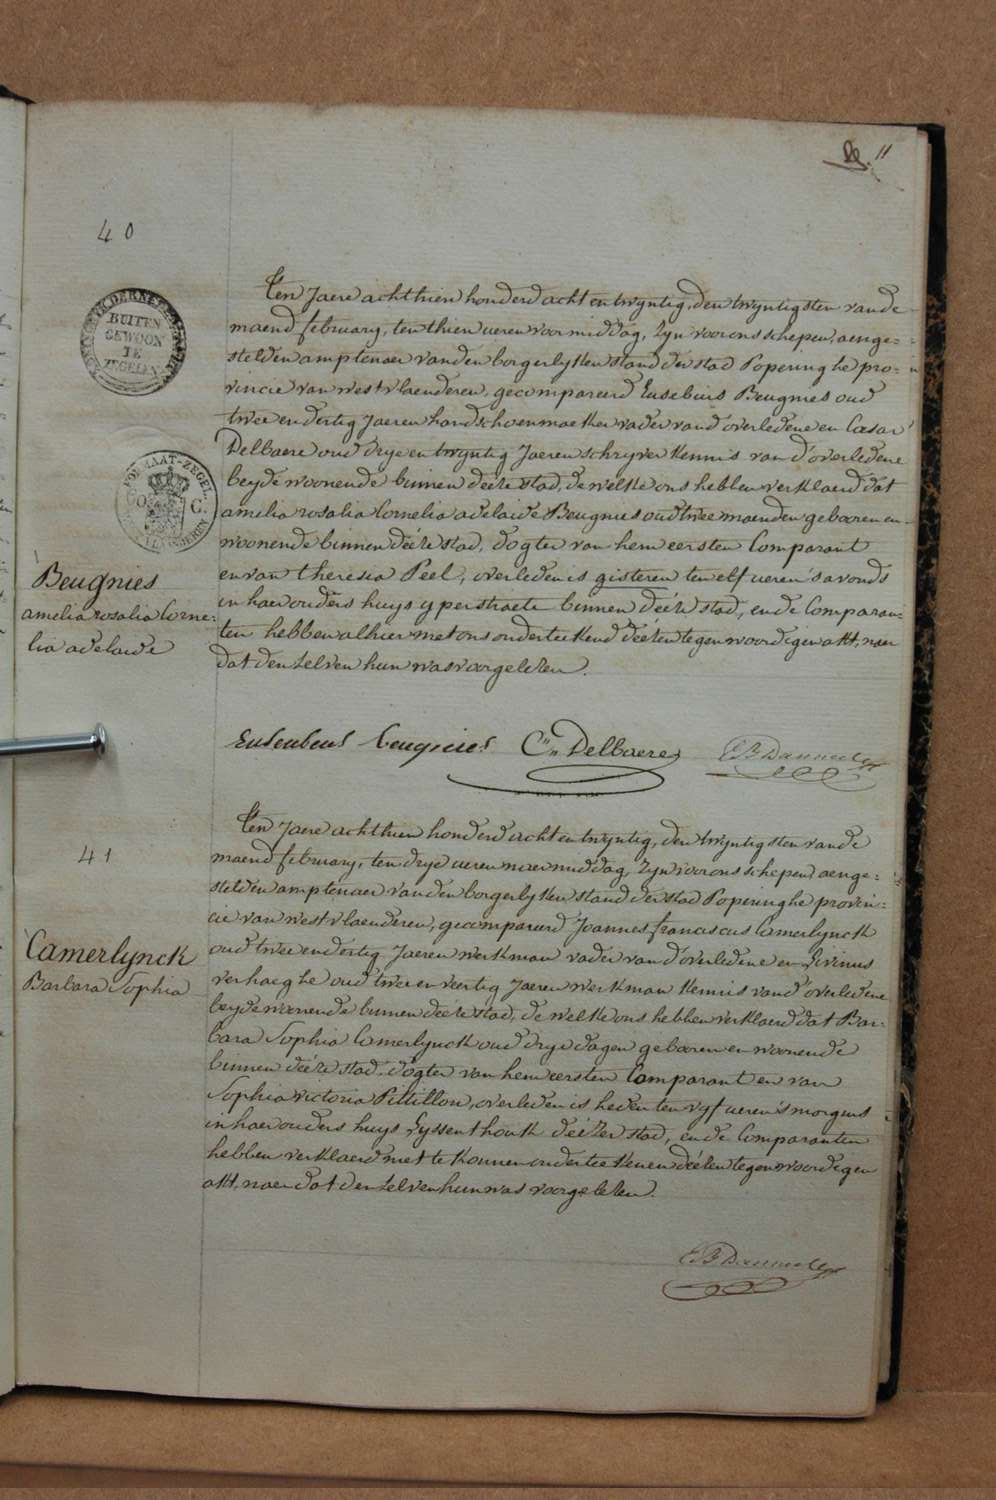 11
40
BUITEN
GEWOON
TE
ZEGELEN
FORMAAT-ZEGEL
C.
Beugnies
amelia rosalia Corne:
lia adelaide
Ten Jaere achthien honderd acht en twyntig, den twyntigsten van de
maend february, ten thien ueren voormiddag, Zyn voor ons schepen, aenge=
stelden amptenaer van den borgerlyken stand der stad Poperinghe pro=
vincie van westvlaenderen, gecompareerd Eusebius Beugnies oud
twee en dertig Jaeren handschoenmaeker vader van d'overledene en Cæsar
Delbaere oud drye en twyntig Jaeren schryver kennis van d'overledene
beyde woonende binnen deéze stad, de welke ons hebben verklaerd dat
amelia rosalia Cornelia adelaide Beugnies oud twee maenden geboren en
woonende binnen deéze stad, dogter van hem eersten Comparant
en van theresia Peel, overleden is gisteren ten elf ueren 's avonds
in haer ouders huys yperstraete binnen deéze stad, en de Comparan=
ten hebben alhier met ons onderteekend deézen tegenwoordigen akt, naer
dat den zelven hun was voorgelezen.
Euseubeus beugnies Cn. Delbaere
41
Camerlynck
Barbara Sophia
Ten Jaere achthien honderd acht en twyntig, den twyntigsten van de
maend february, ten drye ueren naermiddag, Zyn voor ons schepen, aenge=
stelden amptenaer van den borgerlyken stand der stad Poperinghe provin=
cie van westvlaenderen, gecompareerd Joannes franciscus Camerlynck
oud twee en dertig Jaeren werkman vader van d'overledene en Livinus
verhaeghe oud twee en veertig Jaeren werkman kennis van d'overledene
beyde woonende binnen deéze stad, de welke ons hebben verklaerd dat Bar-
bara Sophia Camerlynck oud drye dagen geboren en woonende
binnen deéze stad, dogter van hem eersten Comparant en van
Sophia victoria Pittillon, overleden is heden ten vyf ueren 's morgens
in haer ouders huys Lyssenthouk deézer stad, en de Comparanten
hebben verklaerd niet te konnen onderteekenen deézen tegenwoordigen
akt, naer dat den zelven hun was voorgelezen.